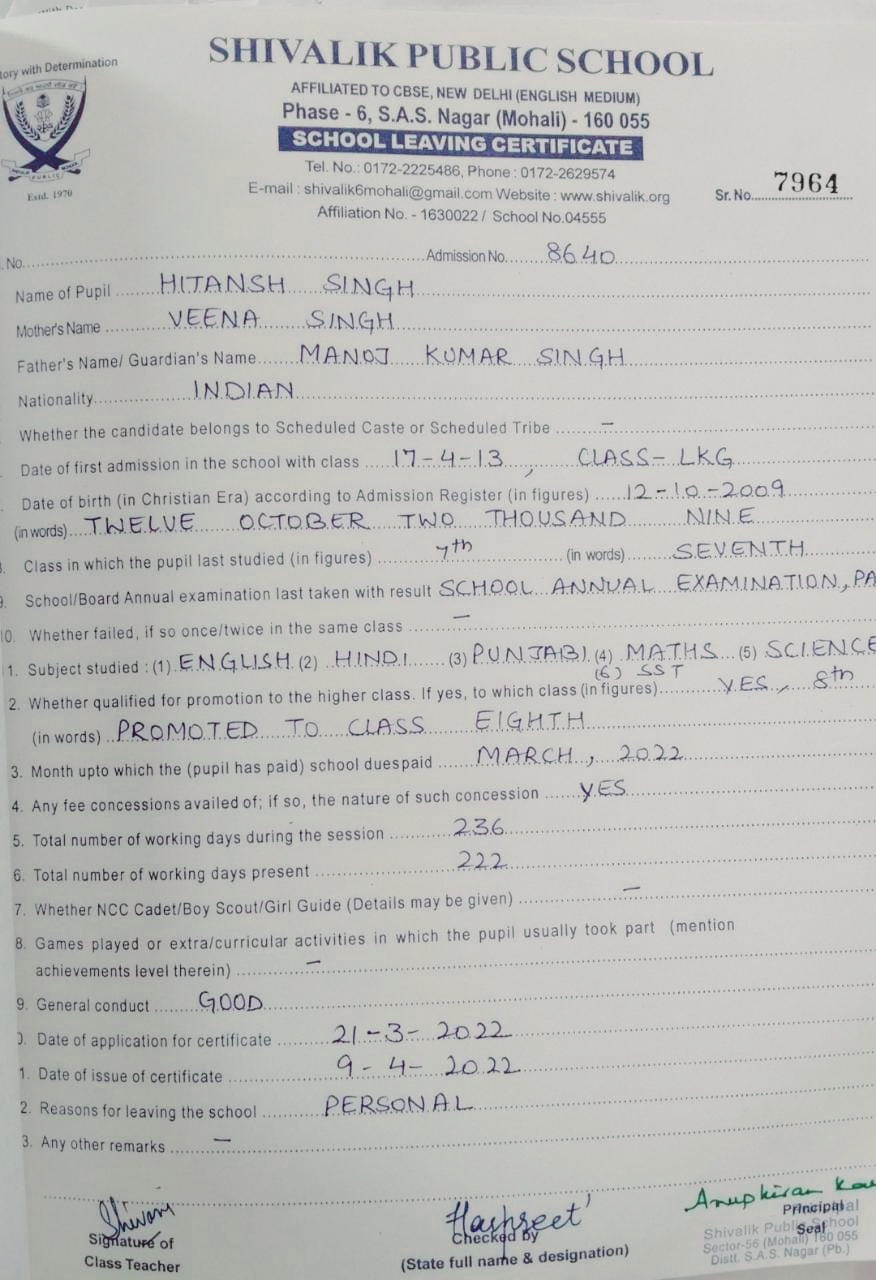 tory with Determination
SHIVALIK PUBLIC SCHOOL
AFFILIATED TO CBSE, NEW DELHI (ENGLISH MEDIUM)
Phase - 6, S.A.S. Nagar (Mohali) - 160 055
SCHOOL LEAVING CERTIFICATE
Tel. No.: 0172-2225486, Phone : 0172-2629574
E-mail : shivalik6mohali@gmail.com Website : www.shivalik.org
Affiliation No. - 1630022 / School No.04555
PUBLIC
Estd. 1970
Sr. No. 7964
. No. Admission No. 8640
Name of Pupil HITANSH SINGH
Mother's Name VEENA SINGH
Father's Name/ Guardian's Name MANOJ KUMAR SINGH
Nationality INDIAN
Whether the candidate belongs to Scheduled Caste or Scheduled Tribe –
Date of first admission in the school with class 17-4-13, CLASS- LKG
Date of birth (in Christian Era) according to Admission Register (in figures) 12-10-2009
(in words) TWELVE OCTOBER TWO THOUSAND NINE
. Class in which the pupil last studied (in figures) 7th (in words) SEVENTH
9. School/Board Annual examination last taken with result SCHOOL ANNUAL EXAMINATION, PA
10. Whether failed, if so once/twice in the same class –
1. Subject studied : (1) ENGLISH (2) HINDI (3) PUNJABI (4) MATHS (5) SCIENCE
(6) SST
2. Whether qualified for promotion to the higher class. If yes, to which class (in figures) YES, 8th
(in words) PROMOTED TO CLASS EIGHTH
3. Month upto which the (pupil has paid) school duespaid MARCH, 2022
4. Any fee concessions availed of; if so, the nature of such concession YES
5. Total number of working days during the session 236
6. Total number of working days present 222
7. Whether NCC Cadet/Boy Scout/Girl Guide (Details may be given) –
8. Games played or extra/curricular activities in which the pupil usually took part (mention
achievements level therein) –
9. General conduct GOOD
0. Date of application for certificate 21-3-2022
1. Date of issue of certificate 9-4-2022
2. Reasons for leaving the school PERSONAL
3. Any other remarks –
Shivani
Signature of
Class Teacher
Harpreet
Checked by
(State full name & designation)
Anupkiran Kau
Principal
Seal
Principal
Shivalik Public School
Sector-56 (Mohali) 160 055
Distt. S.A.S. Nagar (Pb.)